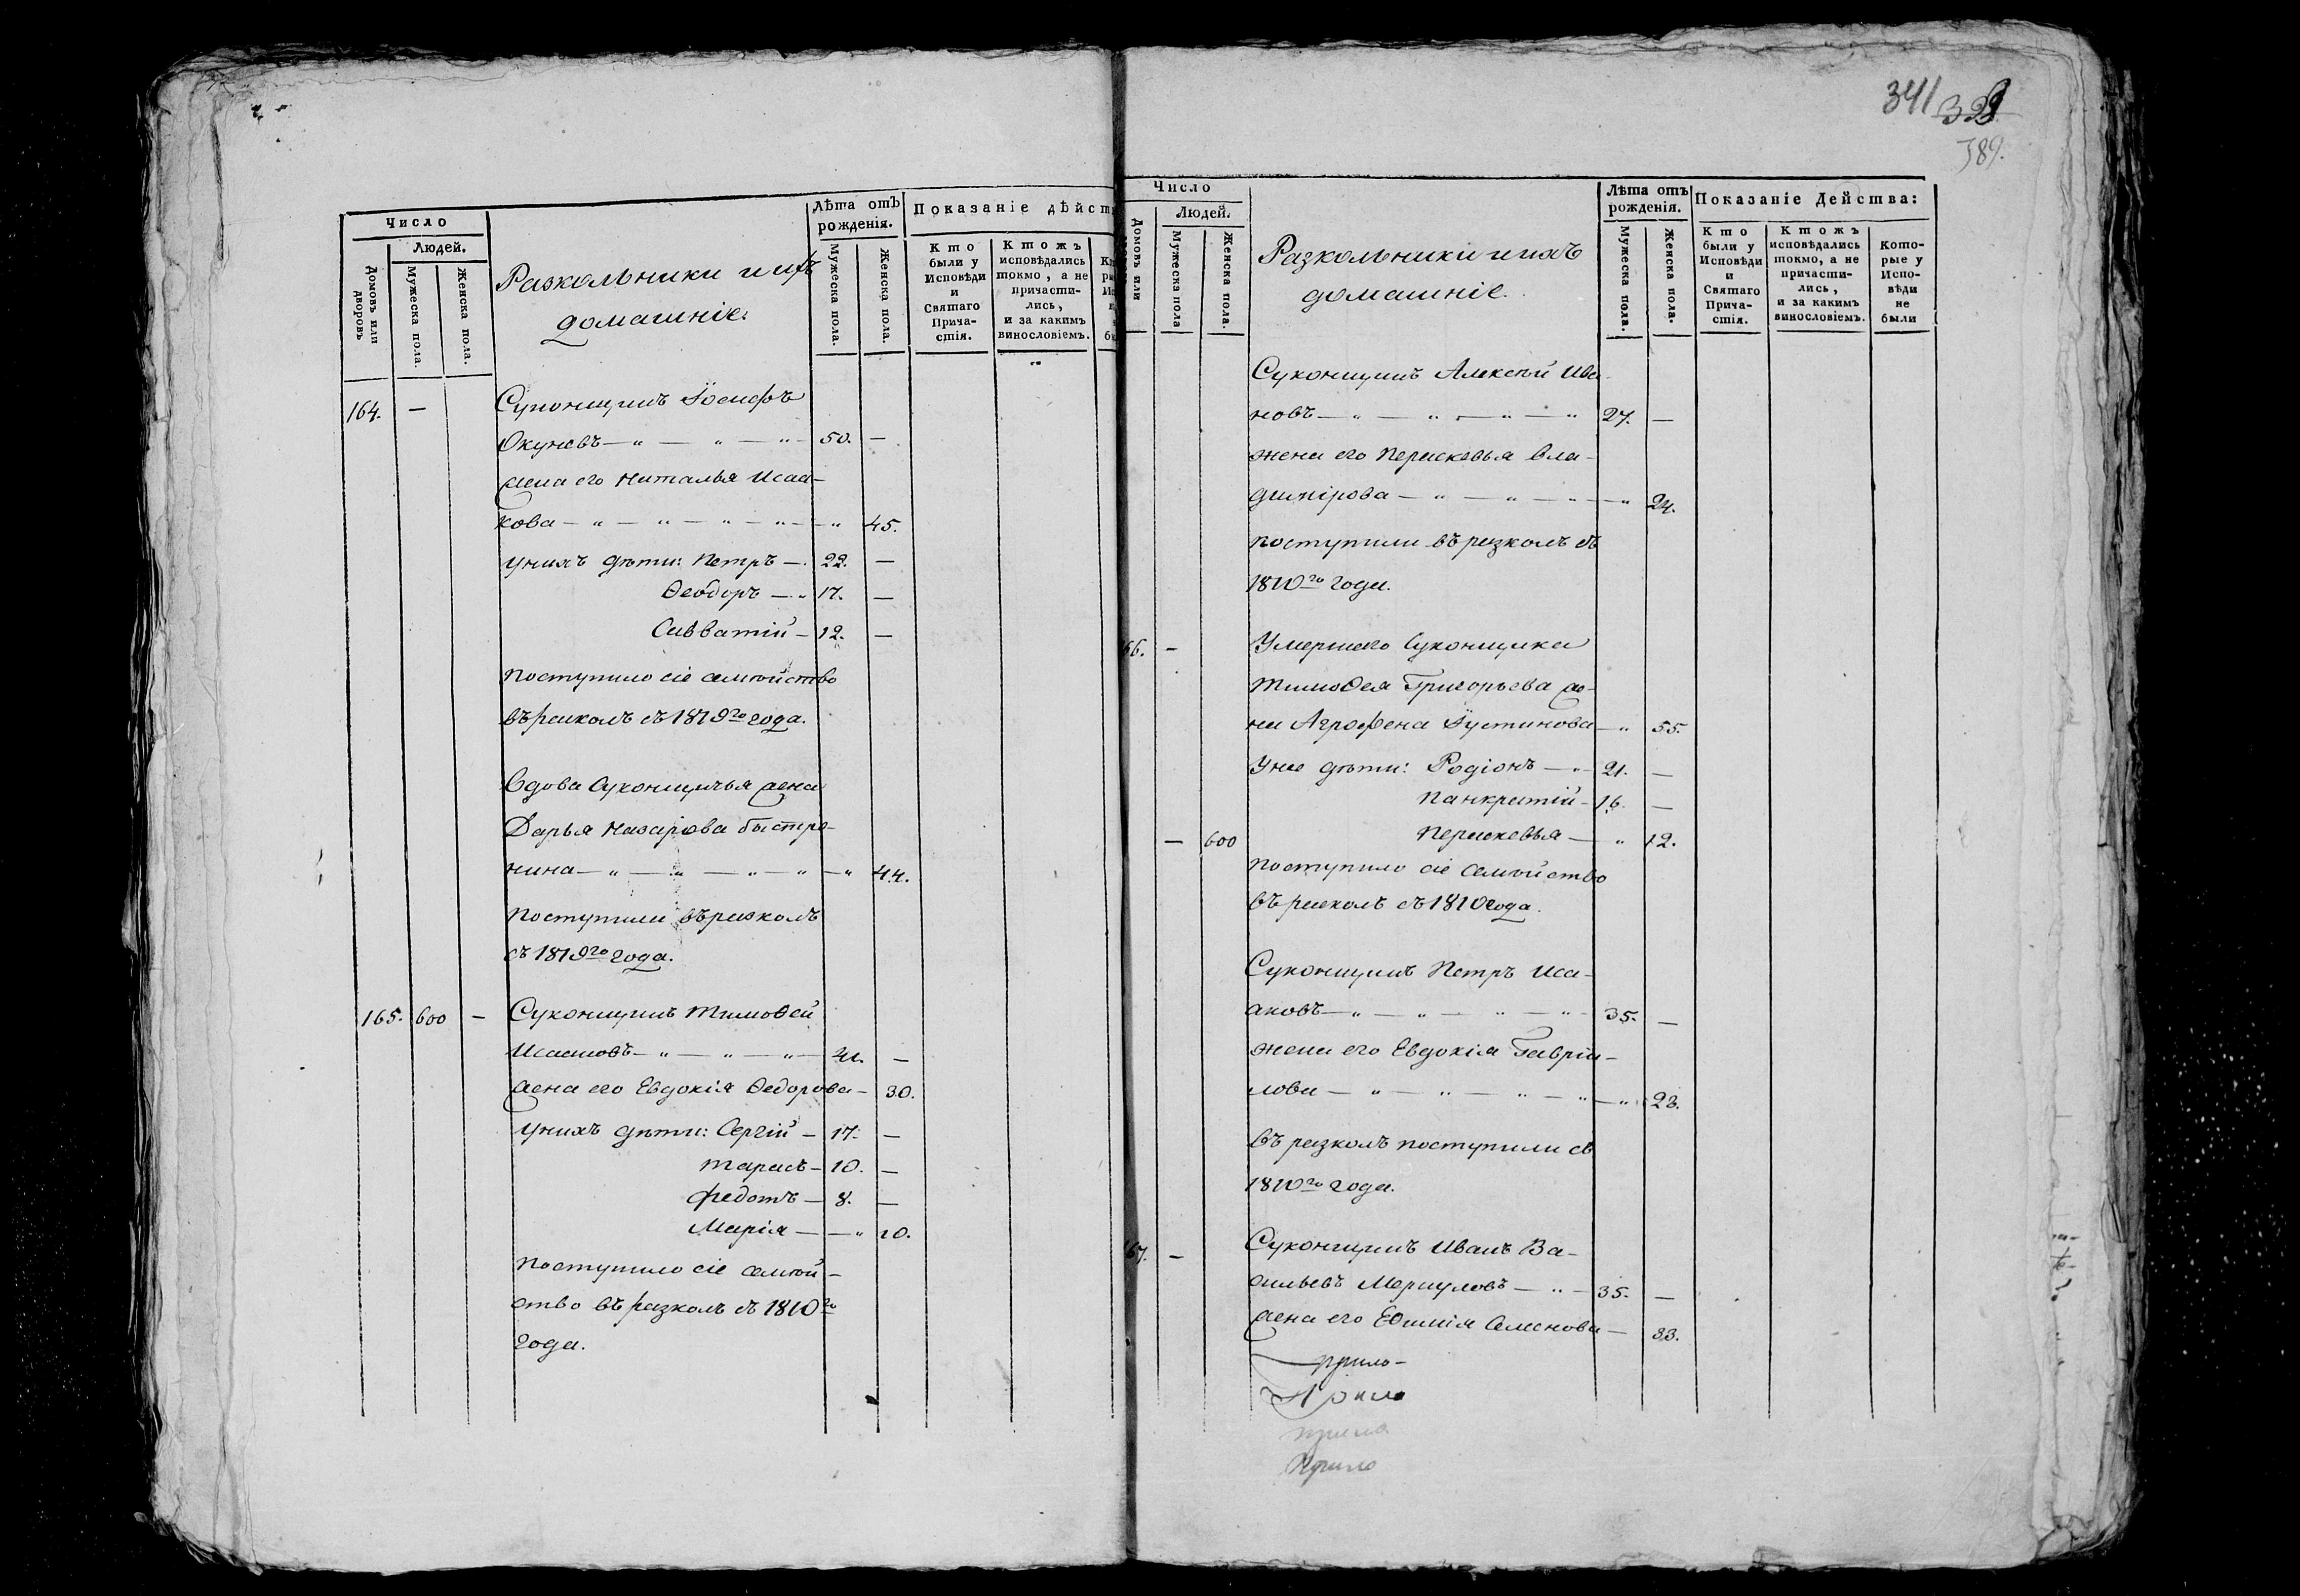 Число
Людей.
Домовъ или дворовъ
Мужеска пола.
Женска пола.
Разкольники и ихъ
домашніе.
Лѣта отъ
рожденія.
Мужеска пола.
Женска пола.
Показаніе дѣйст
Кто
были у
Исповѣди
и
Святаго
Прича-
стія.
Ктожъ
исповѣдались
токмо, а не
причасти-
лись,
и за какимъ
винословіемъ.
164. — Суконщикъ Іосифъ
Окуневъ — „ — „ — „ — 50. —
жена его Наталья Исаа-
кова — „ — „ — „ — „ — „ 45.
у нихъ дѣти: Петръ — 22. —
Ѳеодоръ — „ 17. —
Савватій — 12. —
поступило сіе семейство
въ расколъ съ 1819го года.
Вдова Суконщичья жена
Дарья Назарова Быстре-
нина — „ — „ — „ — „ — „ 44.
поступили въ разколъ
съ 1819го года.
165. 600 — Суконщикъ Тимоѳей
Исааковъ — „ — „ — „ — 41. —
жена его Евдокія Ѳедорова — 30.
у нихъ дѣти: Сергій — 17. —
Тарасъ — 10. —
Федотъ — 8. —
Марія — — „ 10.
поступило сіе семей-
ство въ разколъ съ 1810го
года.
341 389.
Число
Людей.
Домовъ или
Мужеска пола
Женска пола.
Разкольники и ихъ
домашніе.
Лѣта отъ
рожденія.
Мужеска пола.
Женска пола.
Показаніе Действа:
Кто
были у
Исповѣди
и
Святаго
Прича-
стія.
Ктожъ
исповѣдались
токмо, а не
причасти-
лись,
и за какимъ
винословіемъ.
Кото-
рые у
Испо-
вѣди
не
были
Суконщикъ Алексѣй Ива-
новъ — „ — „ — „ — „ 27. —
жена его Параскевья Вла-
димірова — „ — „ — „ — „ 24.
поступили въ разколъ съ
1810го года.
66. — Умершаго Суконщика
Тимоѳея Григорьева же-
на Агрофена Іустинова — „ 55.
У нее дѣти: Родіонъ — „ 21. —
Панкратій — 16. —
— 600 Параскевья — „ 12.
поступило сіе семейство
въ расколъ съ 1810 года.
Суконщикъ Петръ Иса-
аковъ — „ — „ — „ — „ — 35. —
жена его Евдокія Гаврі-
лова — „ — „ — „ — „ — „ 23.
въ разколъ поступили съ
1810го года.
67. — Суконщикъ Иванъ Ва-
сильевъ Меркуловъ — „ — 35. —
жена его Еѳимія Семенова — 33.